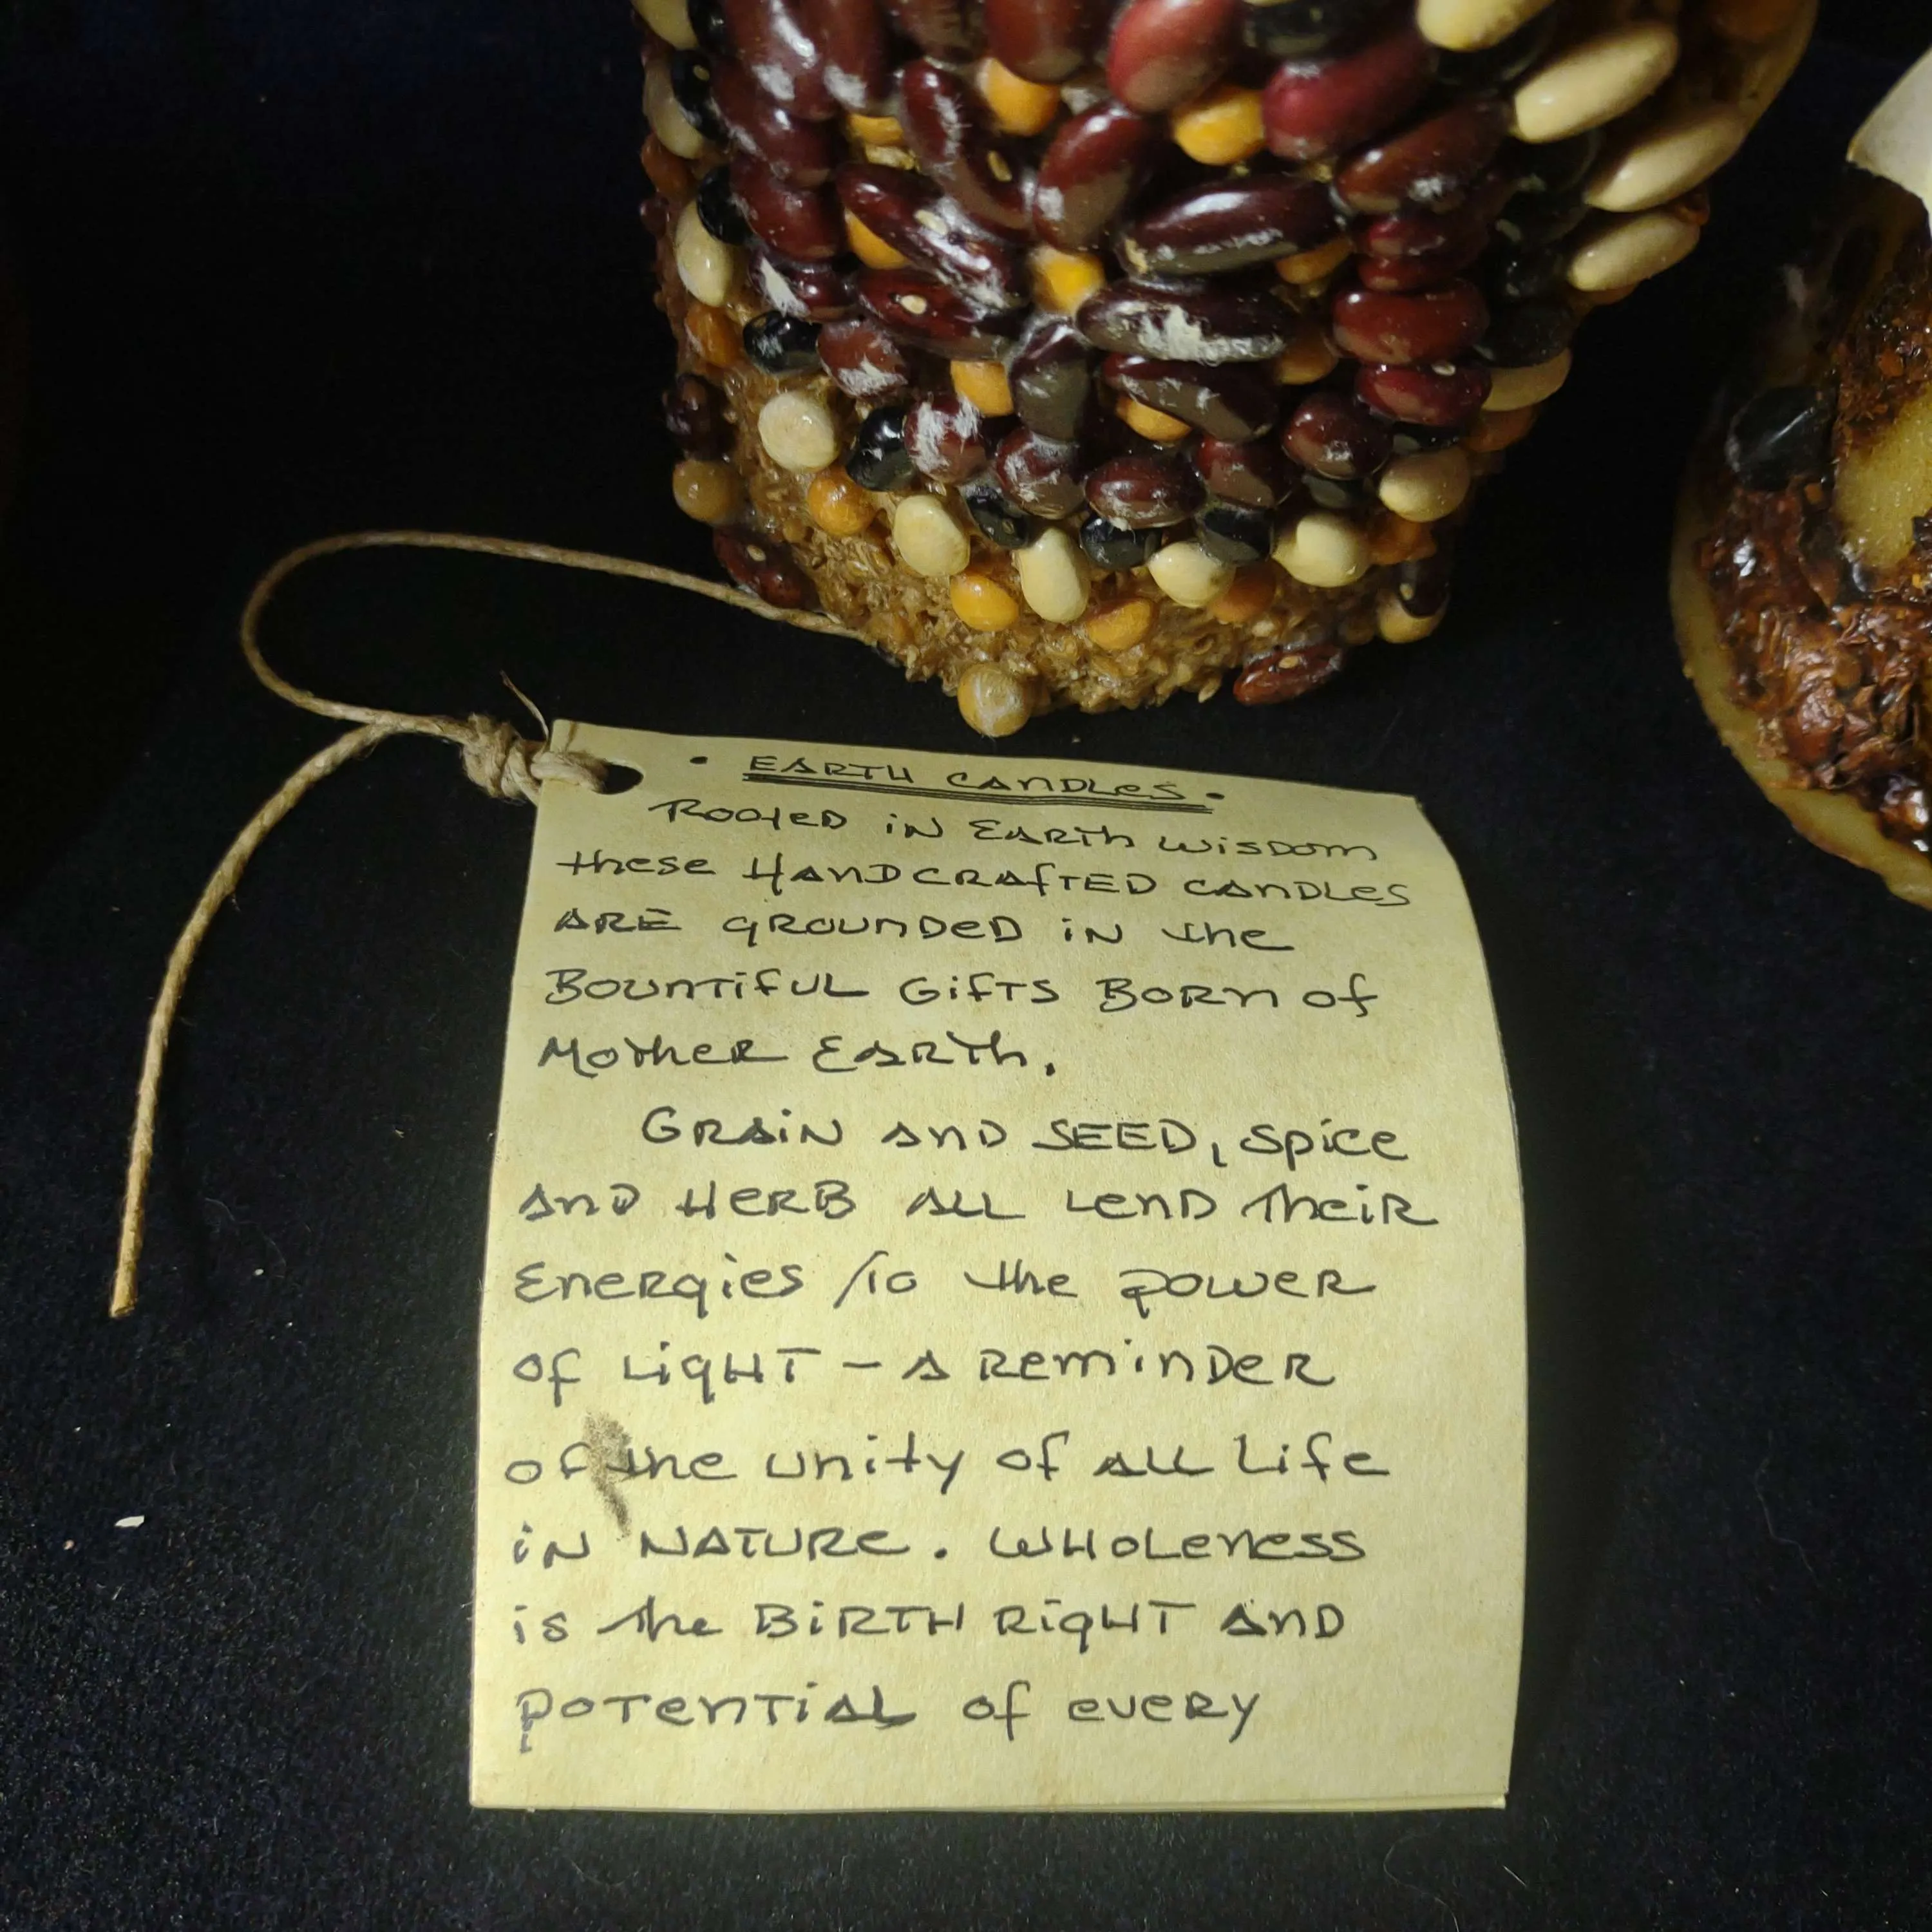 · EARTH CANDLES ·
ROOTED IN EARTH WISDOM
these HANDCRAFTED CANDLES
ARE GROUNDED IN the
BOUNTIFUL GIFTS BORN OF
MOTHER EARTH.
GRAIN AND SEED, SPICE
AND HERB ALL LEND THEIR
ENERGIES TO the POWER
OF LIGHT – A REMINDER
OF the UNITY OF ALL LIFE
IN NATURE. WHOLENESS
IS the BIRTH RIGHT AND
POTENTIAL OF EVERY